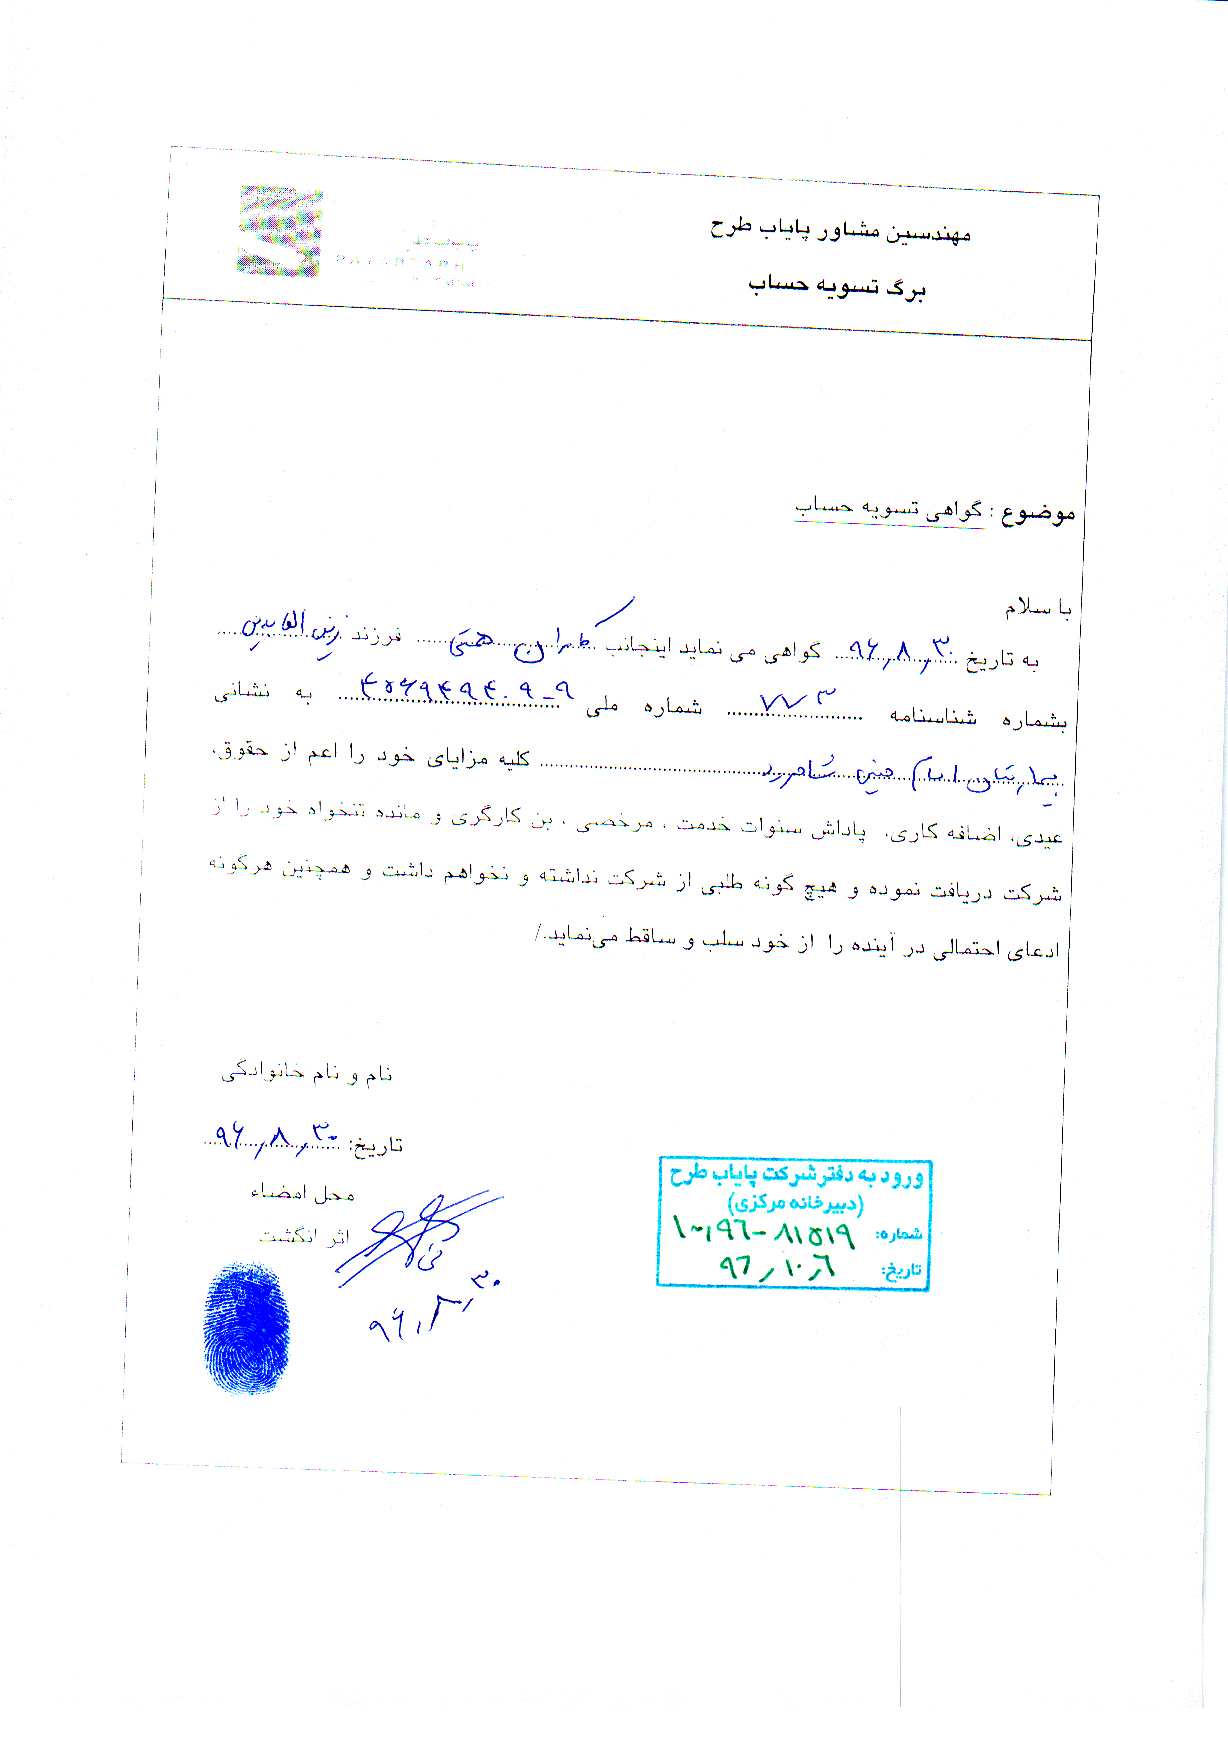 مهندسین مشاور پایاب طرح
برگ تسویه حساب
موضوع : گواهی تسویه حساب
با سلام
به تاریخ ۹۶٫۸٫۳۰ گواهی می نماید اینجانب کامران همتی فرزند زین العابدین
بشماره شناسنامه ۷۷۳ شماره ملی ۹-۴۰۵۶۹۴۹۴۰۹ به نشانی
بیمارستان امام حسین شاهرود کلیه مزایای خود را اعم از حقوق،
عیدی، اضافه کاری، پاداش سنوات خدمت ، مرخصی ، بن کارگری و مانده تنخواه خود را از
شرکت دریافت نموده و هیچ گونه طلبی از شرکت نداشته و نخواهم داشت و همچنین هرگونه
ادعای احتمالی در آینده را از خود سلب و ساقط می‌نماید./
نام و نام خانوادگی
تاریخ: ۹۶٫۸٫۳۰
محل امضاء
اثر انگشت
۹۶٫۸٫۳۰
ورود به دفتر شرکت پایاب طرح
(دبیرخانه مرکزی)
شماره: ۱۰٫۹۶-۸۱۵۱۹
تاریخ: ۹۶٫۱۰٫۶